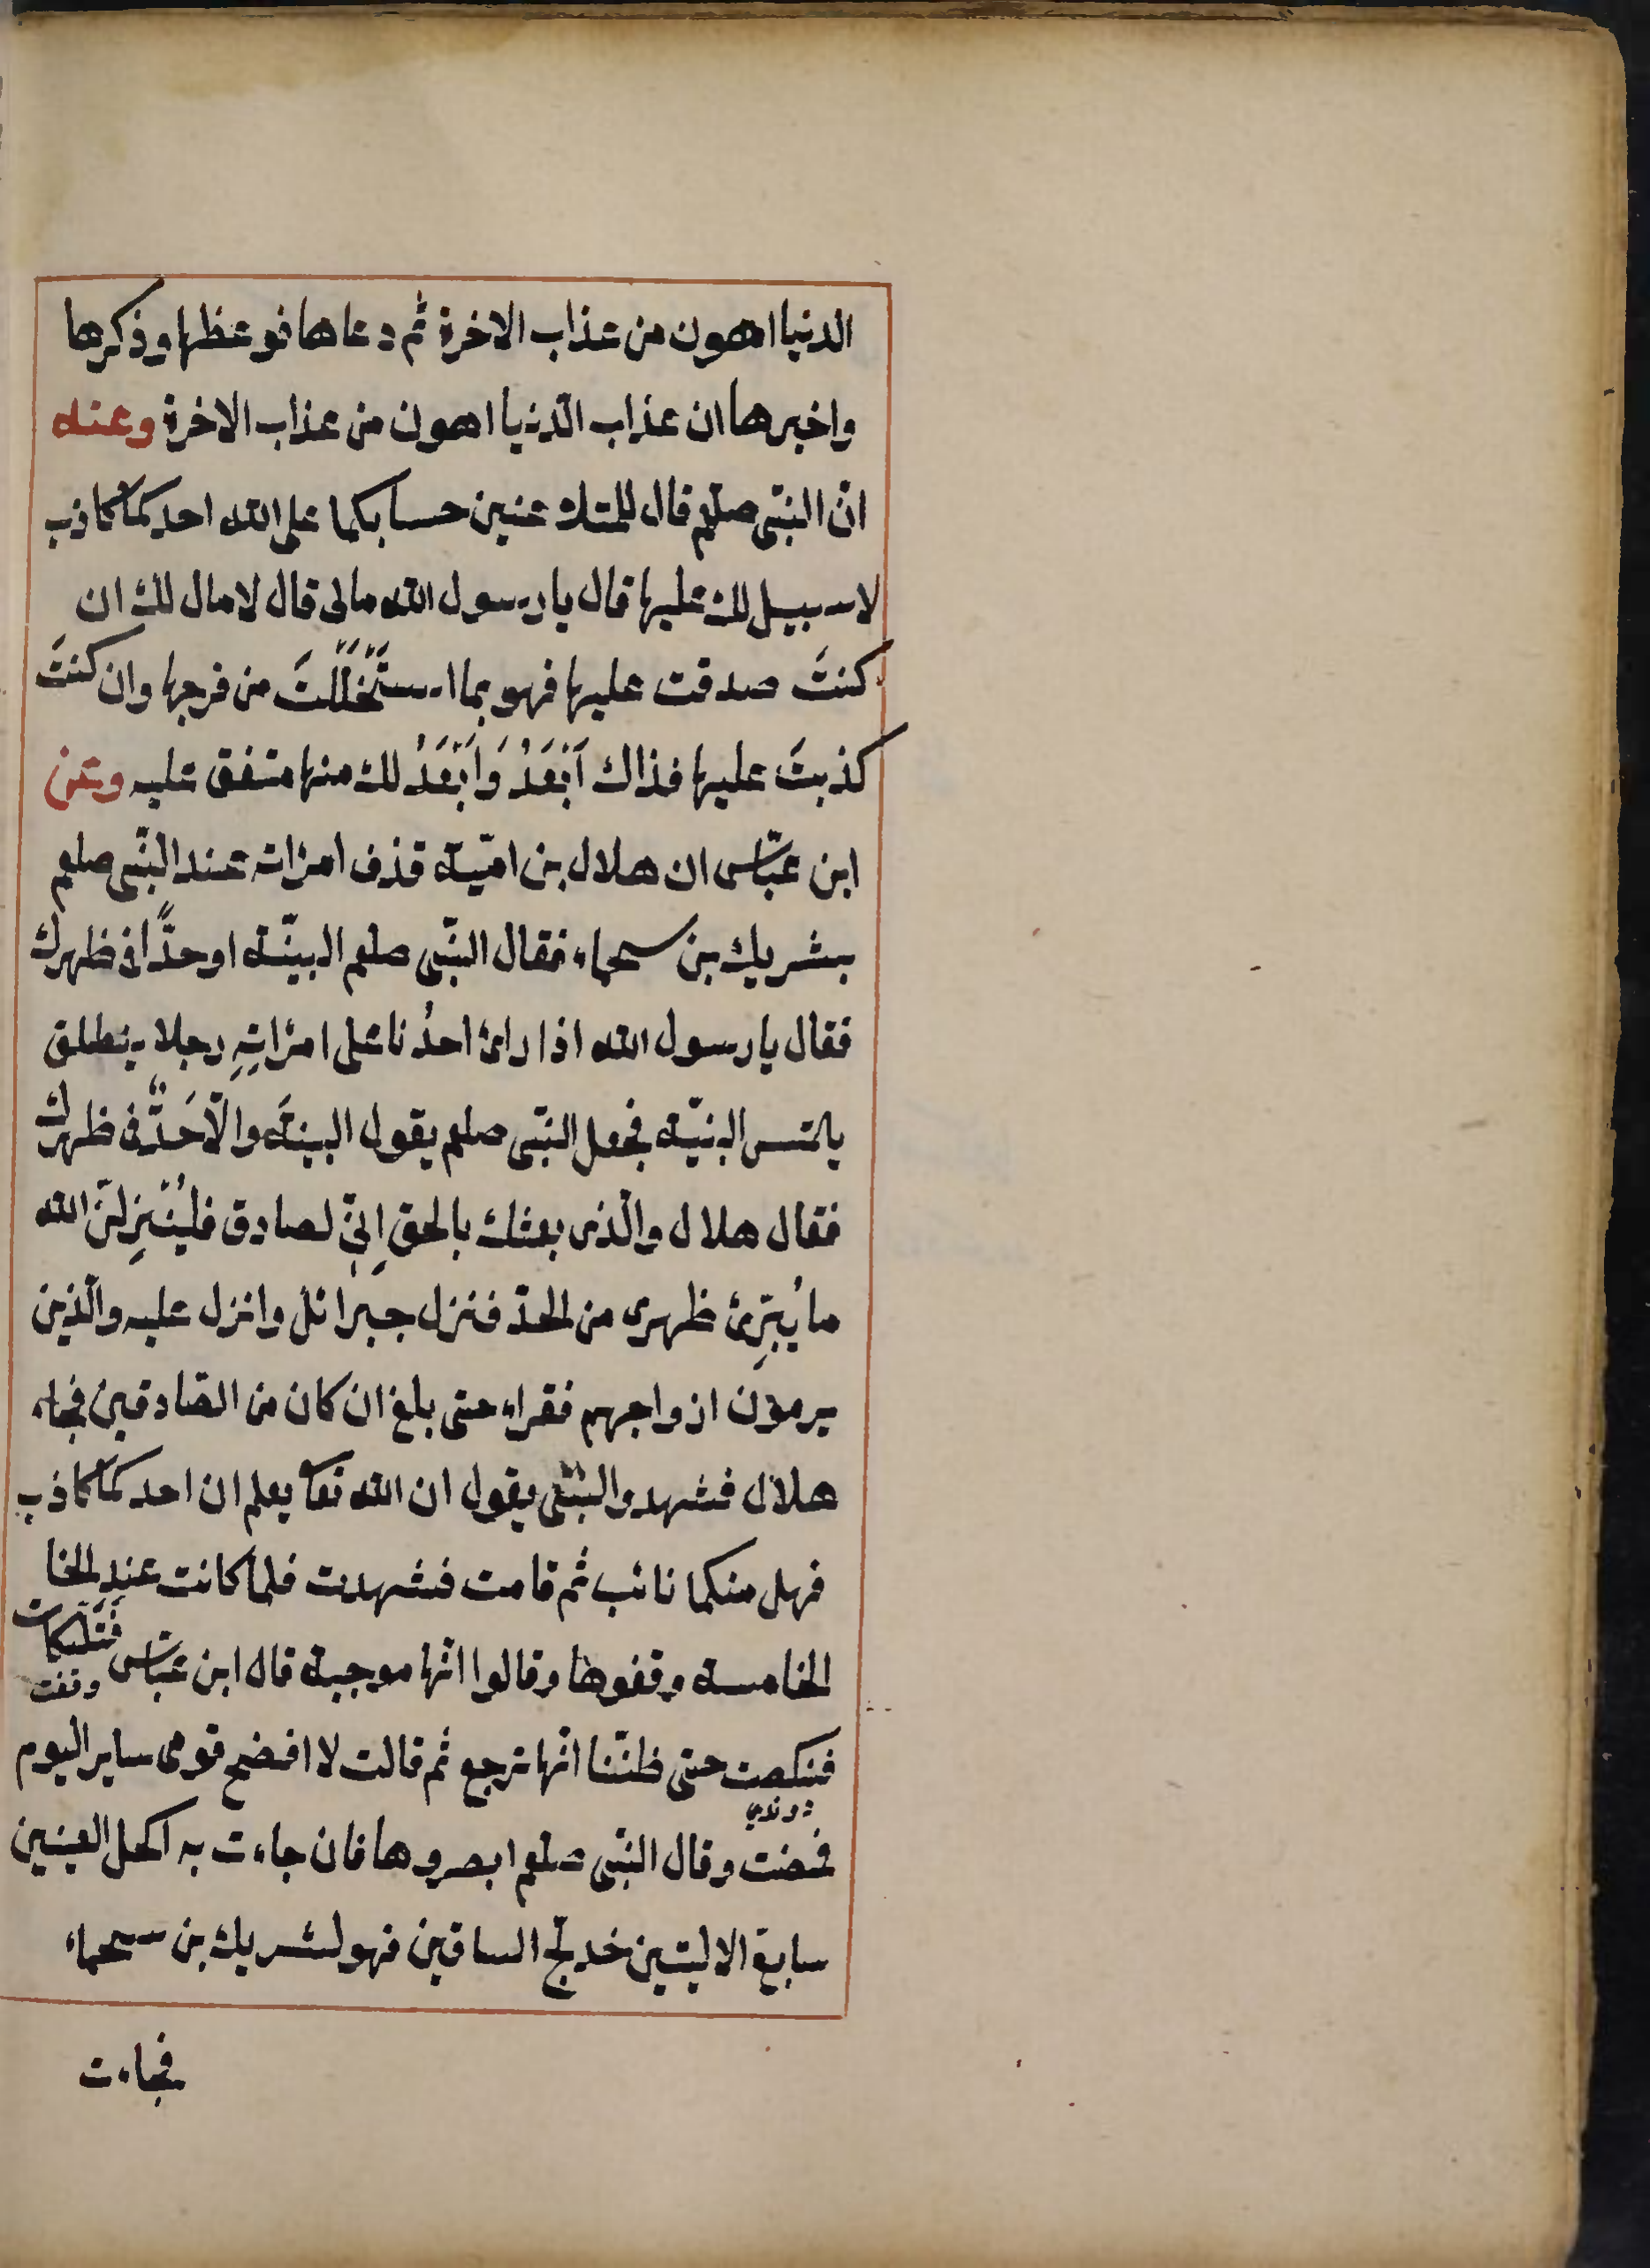 الدنيا اهون من عذاب الاخرة ثم دعاها فوعظها وذكرها
واخبرها ان عذاب الدّنيا اهون من عذاب الاخرة وعنه
انّ النبّى صلعم قال للمتلاعنين حسابكما على الله احدكما كاذب
لا سبيل لك عليها قال يا رسول الله مالى قال لا مال لك ان
كنتَ صدقت عليها فهو بما استَحْلَلْتَ من فرجها وان كنتَ
كذبتَ عليها فذاك اَبْعَدُ وَاَبْعَدُ لك منها متفق عليه وعن
ابن عبّاس ان هلال بن اميّة قذف امراته عند النبّى صلعم
بشريك بن سحماء فقال النبّى صلعم البيّنة او حدًّا فى ظهرك
فقال يا رسول الله اذا راىٔ احدُنا على امراتِهِ رجلا ينطلق
يلتمس البنيّة فجعل النبّى صلعم يقول البينةَ والّا حَدٌّ فى ظهرك
فقال هلال والّذى بعثك بالحق اِنّى لصادق فليُنْزِلنّ الله
ما يُبَرِّئ ظهرى من الحدّ فنزل جبرائل وانزل عليه والّذين
يرمون ازواجهم فقراء حتى بلغ ان كان من الصّادقين فجاء
هلال فشهد والنبّى يقول ان الله تعا يعلم ان احدكما كاذب
فهل منكما تائب ثم قامت فشهدت فلما كانت عند الخا
الخامسة وقفوها وقالوا انّها موجبة قال ابن عبّاس فَتَلَكَّات
وقفت
فنكصت حتى ظننّا انّها ترجع ثم قالت لا افضح قومى ساير اليوم
فمضت وقال النبّى صلعم ابصروها فان جاءت به اكحل العينين
سابغ الاليتين خدلّج الساقين فهو لشريك بن سحماء
فجاءت